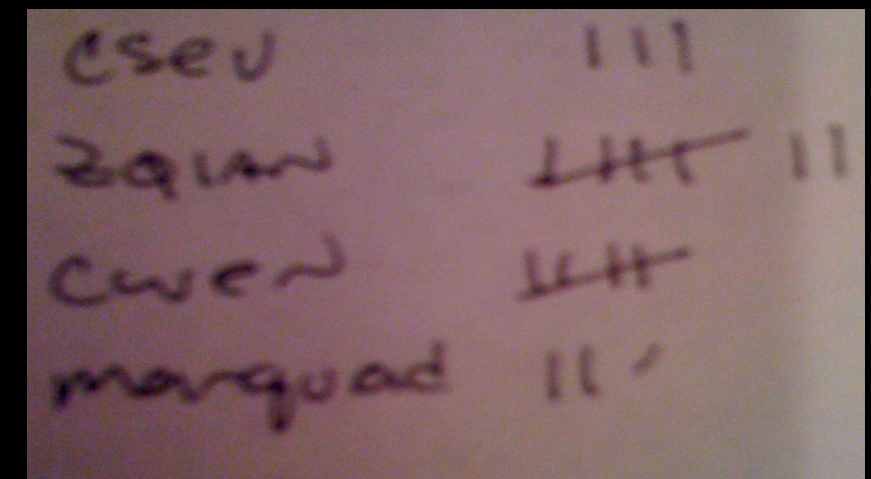 csev III
zqian IIII II
cwen IIII
marquad II'